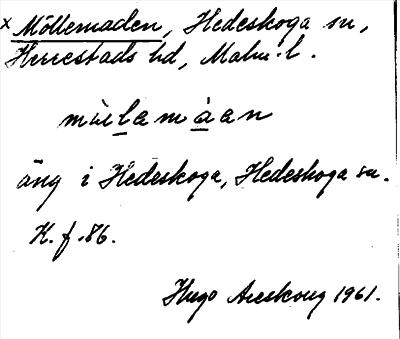 x Möllemaden, Hedeskoga sn,
Herrestads hd, Malm. l.
mùlamàan
äng i Hedeskoga, Hedeskoga sn.
K. f. 86.
Hugo Areskoug 1961.